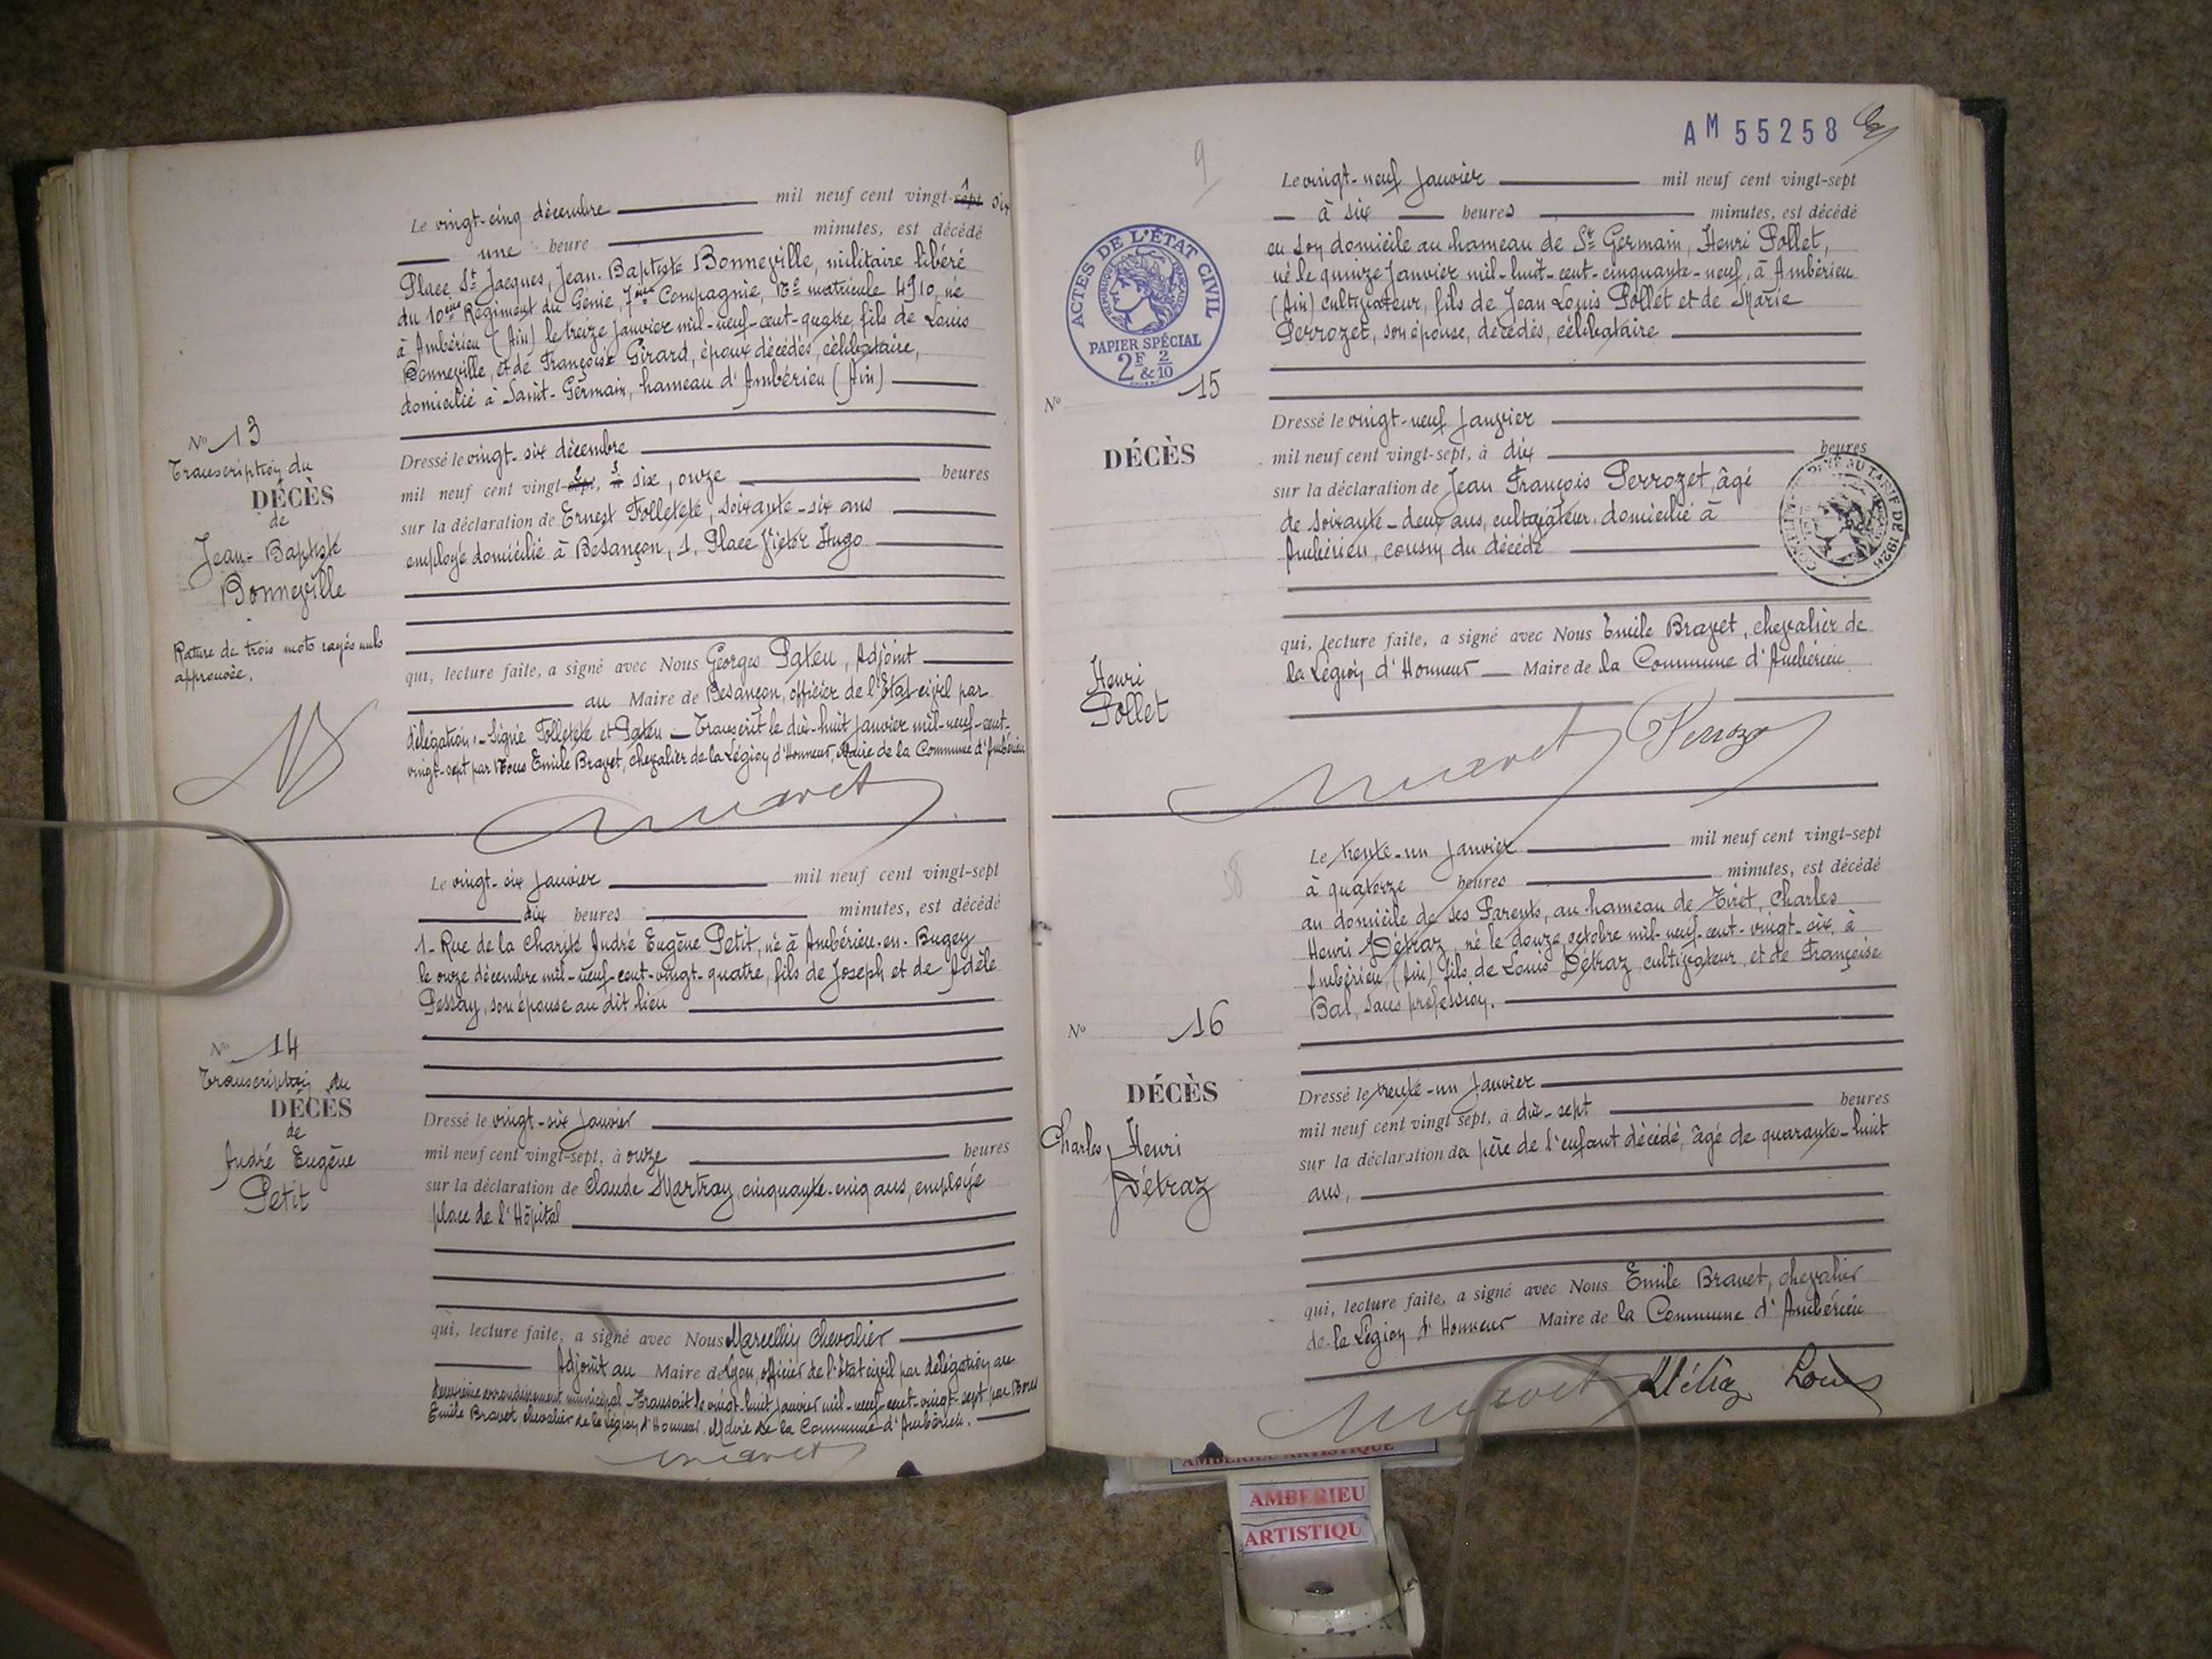 Le vingt-cinq décembre mil neuf cent vingt-sept six
une heure minutes, est décédé
Place St Jacques, Jean-Baptiste Bonneville, militaire libéré
du 10ème Régiment du Génie, 7ème Compagnie, No matricule 4910, né
à Ambérieu (Ain) le treize janvier mil-neuf-cent-quatre, fils de Louis
Bonneville, et de Françoise Girard, époux décédés, célibataire,
domicilié à Saint-Germain, hameau d'Ambérieu (Ain)
No 13
Transcription du
DÉCÈS
de
Jean-Baptiste
Bonneville
Rature de trois mots rayés nuls
approuvée.
Dressé le vingt-six décembre
mil neuf cent vingt-sept, à six, onze heures
sur la déclaration de Ernest Tolletete, soixante-six ans
employé domicilié à Besançon, 1, Place Victor Hugo
qui, lecture faite, a signé avec Nous Georges Pateu, Adjoint
au Maire de Besançon, officier de l'état-civil par
délégation.- Signé Tolletete et Pateu - Transcrit le dix-huit janvier mil-neuf-cent-
vingt-sept par Nous Emile Bravet, chevalier de la Légion d'Honneur, Maire de la Commune d'Ambérieu
Le vingt-six janvier mil neuf cent vingt-sept
dix heures minutes, est décédé
1- Rue de la Charité André Eugène Petit, né à Ambérieu-en-Bugey
le onze décembre mil-neuf-cent-vingt-quatre, fils de Joseph et de Adèle
Pessay, son épouse au dit lieu
No 14
Transcription du
DÉCÈS
de
André Eugène
Petit
Dressé le vingt-six janvier
mil neuf cent vingt-sept, à onze heures
sur la déclaration de Claude Martray, cinquante-cinq ans, employé
place de l'Hôpital
qui, lecture faite, a signé avec Nous Marcellin Chevalier
Adjoint au Maire de Lyon, officier de l'état civil par délégation au
deuxième arrondissement municipal - Transcrit le vingt-huit janvier mil-neuf-cent-vingt-sept par Nous
Emile Bravet, chevalier de la Légion d'Honneur, Maire de la Commune d'Ambérieu.
AM 55258
9
ACTES DE L'ÉTAT CIVIL
RÉPUBLIQUE FRANÇAISE
PAPIER SPÉCIAL
2F & 2/10
Le vingt-neuf janvier mil neuf cent vingt-sept
à six heures minutes, est décédé
en son domicile au hameau de St Germain, Henri Pollet,
né le quinze janvier mil-huit-cent-cinquante-neuf, à Ambérieu
(Ain) cultivateur, fils de Jean Louis Pollet et de Marie
Perrozet, son épouse, décédés, célibataire
No 15
DÉCÈS
Henri
Pollet
Dressé le vingt-neuf janvier
mil neuf cent vingt-sept, à dix heures
sur la déclaration de Jean François Perrozet, âgé
de soixante-deux ans, cultivateur, domicilié à
Ambérieu, cousin du décédé
qui, lecture faite, a signé avec Nous Emile Bravet, chevalier de
la Légion d'Honneur Maire de la Commune d'Ambérieu
Le trente-un janvier mil neuf cent vingt-sept
à quatorze heures minutes, est décédé
au domicile de ses Parents, au hameau de Tiret, Charles
Henri Détraz, né le douze octobre mil-neuf-cent-vingt-six, à
Ambérieu, (Ain) fils de Louis Détraz cultivateur, et de Françoise
Bal, sans profession.
No 16
DÉCÈS
Charles Henri
Détraz
Dressé le trente-un janvier
mil neuf cent vingt sept, à dix-sept heures
sur la déclaration du père de l'enfant décédé, âgé de quarante-huit
ans,
qui, lecture faite, a signé avec Nous Emile Bravet, chevalier
de la Légion d'Honneur Maire de la Commune d'Ambérieu
Détraz Louis
AMBERIEU ARTISTIQUE
AMBERIEU
ARTISTIQU